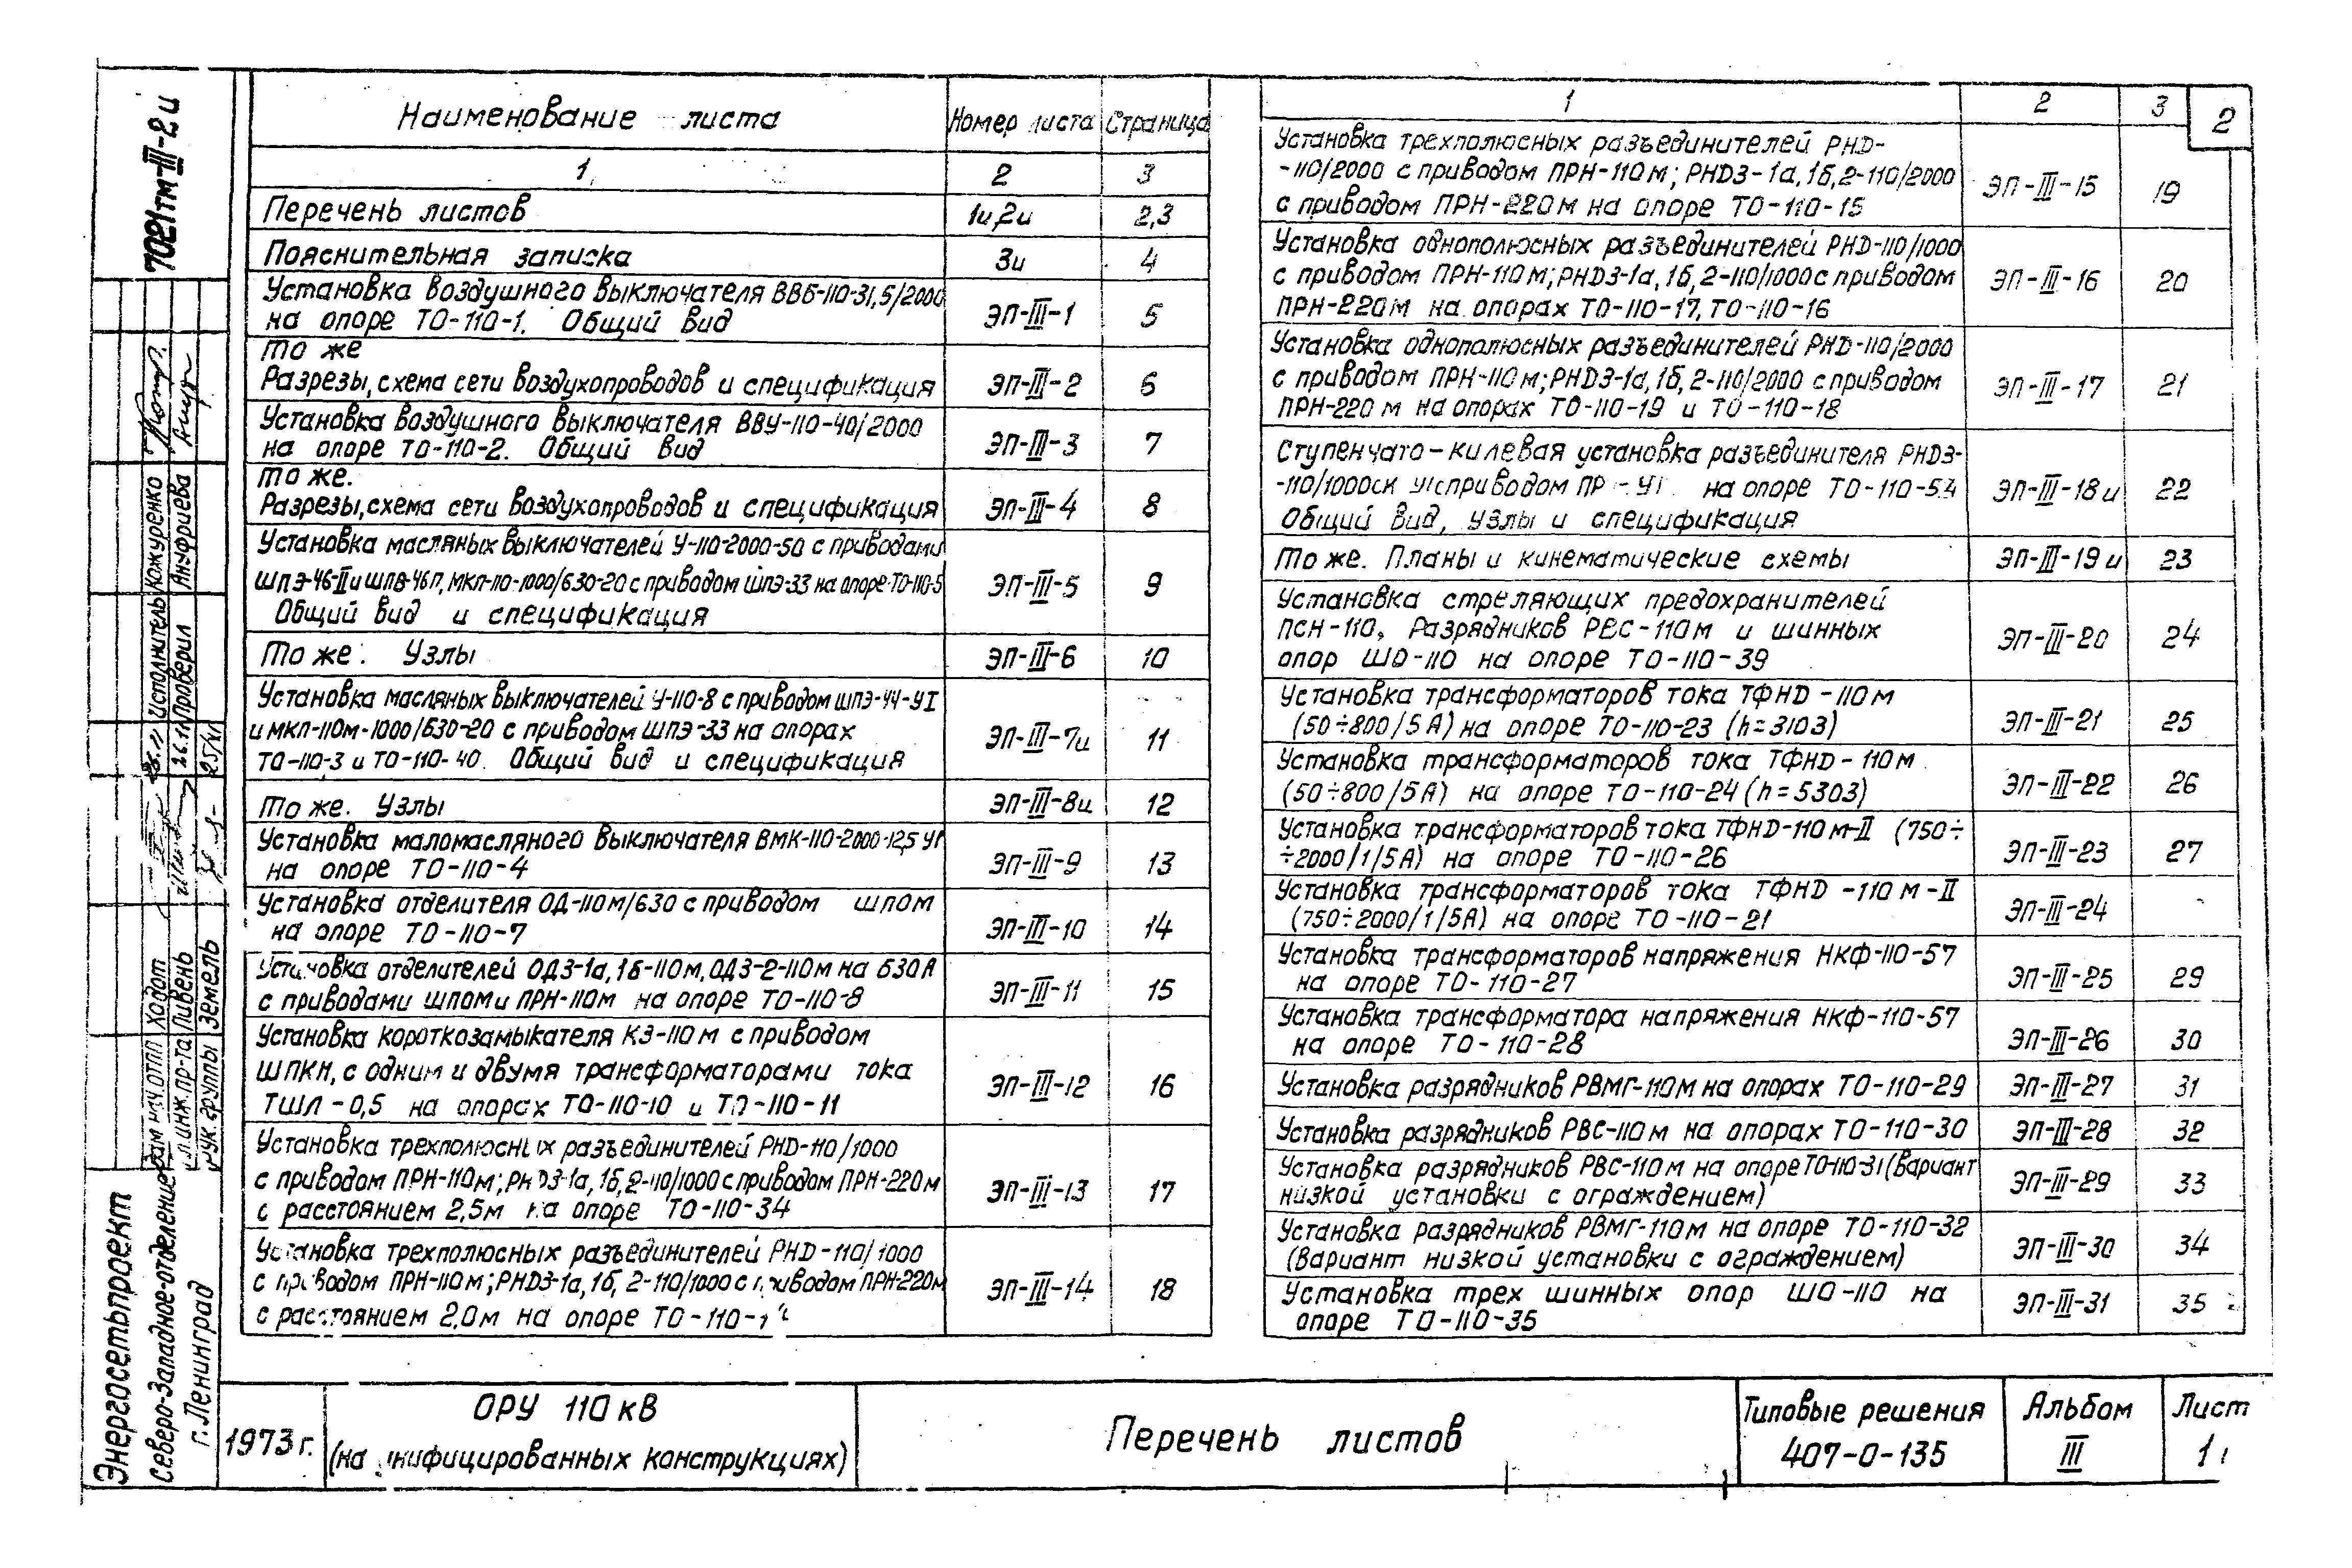 7021тм-III-2и
Наименование листа
Номер листа
Страница
1
2
3
Перечень листов
1и,2и
2,3
Пояснительная записка
3и
4
Установка воздушного выключателя ВВБ-110-31,5/2000
на опоре ТО-110-1. Общий вид
ЭП-III-1
5
То же
Разрезы, схема сети воздухопроводов и спецификация
ЭП-III-2
6
Установка воздушного выключателя ВВУ-110-40/2000
на опоре ТО-110-2. Общий вид
ЭП-III-3
7
То же.
Разрезы, схема сети воздухопроводов и спецификация
ЭП-III-4
8
Установка масляных выключателей У-110-2000-50 с приводами
ШПЭ-46-II и ШПВ-46П, МКП-110-1000/630-20 с приводом ШПЭ-33 на опоре ТО-110-5
Общий вид и спецификация
ЭП-III-5
9
То же. Узлы
ЭП-III-6
10
Установка масляных выключателей У-110-8 с приводом ШПЭ-44-У1
и МКП-110м-1000/630-20 с приводом ШПЭ-33 на опорах
ТО-110-3 и ТО-110-40. Общий вид и спецификация
ЭП-III-7и
11
То же. Узлы
ЭП-III-8и
12
Установка маломасляного выключателя ВМК-110-2000-12,5 У1
на опоре ТО-110-4
ЭП-III-9
13
Установка отделителя ОД-110м/630 с приводом ШПОМ
на опоре ТО-110-7
ЭП-III-10
14
Установка отделителей ОДЗ-1а, 1б-110м, ОДЗ-2-110м на 630А
с приводами ШПОМ и ПРН-110м на опоре ТО-110-8
ЭП-III-11
15
Установка короткозамыкателя КЗ-110м с приводом
ШПКМ, с одним и двумя трансформаторами тока
ТШЛ-0,5 на опорах ТО-110-10 и ТО-110-11
ЭП-III-12
16
Установка трехполюсных разъединителей РНД-110/1000
с приводом ПРН-110м; РНДЗ-1а, 1б, 2-110/1000 с приводом ПРН-220м
с расстоянием 2,5м на опоре ТО-110-34
ЭП-III-13
17
Установка трехполюсных разъединителей РНД-110/1000
с приводом ПРН-110м; РНДЗ-1а, 1б, 2-110/1000 с приводом ПРН-220м
с расстоянием 2,0м на опоре
ЭП-III-14
18
1
2
3
2
Установка трехполюсных разъединителей РНД-
-110/2000 с приводом ПРН-110м; РНДЗ-1а, 1б, 2-110/2000
с приводом ПРН-220м на опоре ТО-110-15
ЭП-III-15
19
Установка однополюсных разъединителей РНД-110/1000
с приводом ПРН-110м; РНДЗ-1а, 1б, 2-110/1000 с приводом
ПРН-220м на опорах ТО-110-17, ТО-110-16
ЭП-III-16
20
Установка однополюсных разъединителей РНД-110/2000
с приводом ПРН-110м; РНДЗ-1а, 1б, 2-110/2000 с приводом
ПРН-220м на опорах ТО-110-19 и ТО-110-18
ЭП-III-17
21
Ступенчато-килевая установка разъединителя РНДЗ-
на опоре ТО-110-54
Общий вид, узлы и спецификация
ЭП-III-18и
22
То же. Планы и кинематические схемы
ЭП-III-19и
23
Установка стреляющих предохранителей
ПСН-110, Разрядников РВС-110м и шинных
опор ШО-110 на опоре ТО-110-39
ЭП-III-20
24
Установка трансформаторов тока ТФНД-110м
(50÷800/5А) на опоре ТО-110-23 (h=3103)
ЭП-III-21
25
Установка трансформаторов тока ТФНД-110м
(50÷800/5А) на опоре ТО-110-24 (h=5303)
ЭП-III-22
26
Установка трансформаторов тока ТФНД-110м-II (750÷
÷2000/1/5А) на опоре ТО-110-26
ЭП-III-23
27
Установка трансформаторов тока ТФНД-110м-II
(750÷2000/1/5А) на опоре ТО-110-21
ЭП-III-24
Установка трансформаторов напряжения НКФ-110-57
на опоре ТО-110-27
ЭП-III-25
29
Установка трансформатора напряжения НКФ-110-57
на опоре ТО-110-28
ЭП-III-26
30
Установка разрядников РВМГ-110м на опорах ТО-110-29
ЭП-III-27
31
Установка разрядников РВС-110м на опорах ТО-110-30
ЭП-III-28
32
Установка разрядников РВС-110м на опоре ТО-110-31 (вариант
низкой установки с ограждением)
ЭП-III-29
33
Установка разрядников РВМГ-110м на опоре ТО-110-32
(вариант низкой установки с ограждением)
ЭП-III-30
34
Установка трех шинных опор ШО-110 на
опоре ТО-110-35
ЭП-III-31
35
Исполнитель Кожуренко
Проверил Ануфриева
Ходот
Гл.инж.пр-та Ливень
Рук.группы Земель
Энергосетьпроект
Северо-Западное отделение
г. Ленинград
1973г.
ОРУ 110кВ
(на унифицированных конструкциях)
Перечень листов
Типовые решения
407-0-135
Альбом
III
Лист
1